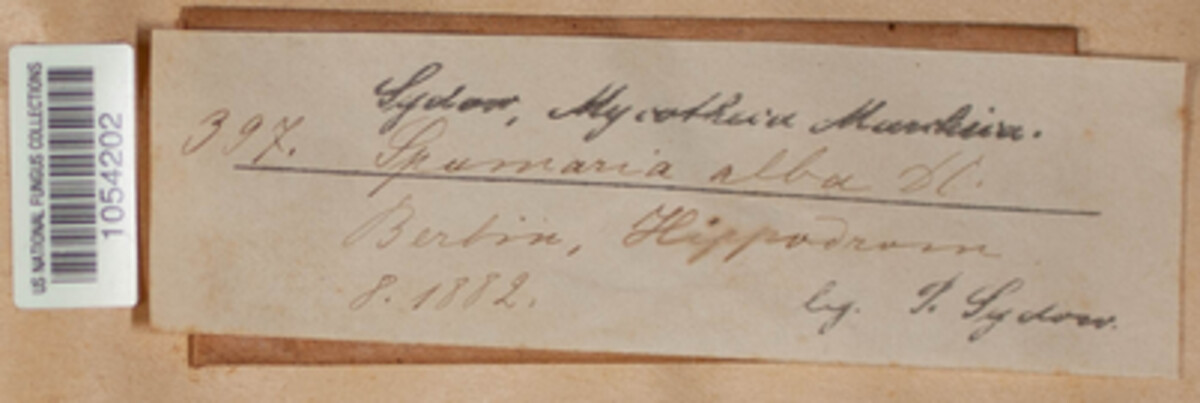 US NATIONAL FUNGUS COLLECTIONS
1054202
Sydow, Mycotheca Marchica.
397. Spumaria alba DC.
Berlin, Hippodrom
8. 1882.
leg. P. Sydow.